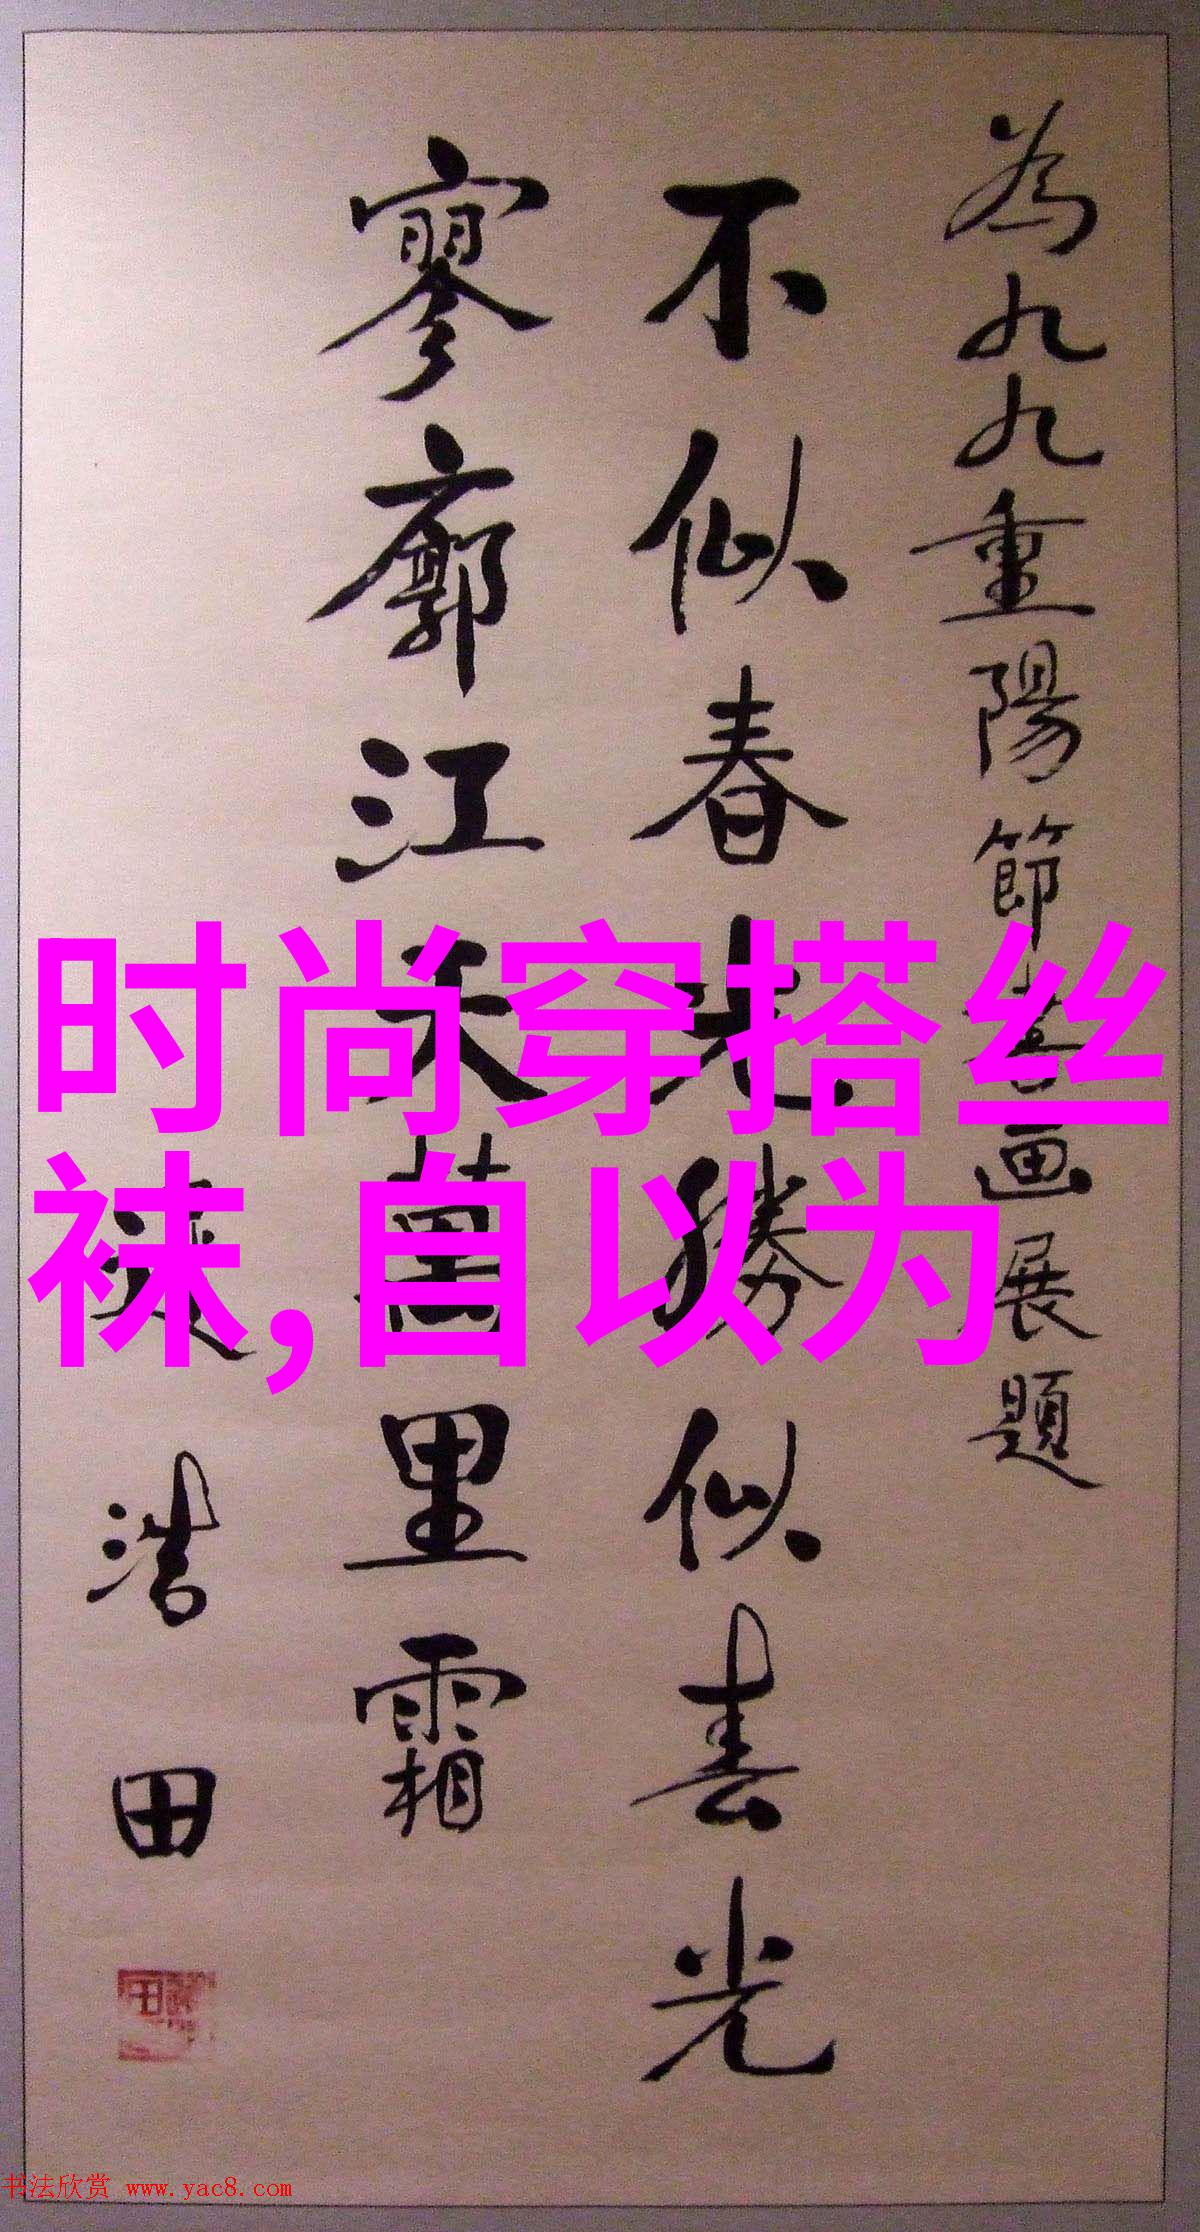 為九九重陽節書画展題
不似春光勝似春光
寥廓江天萬里霜
浩田
时尚穿搭丝
袜,自以为
书法欣赏 www.yac8.com